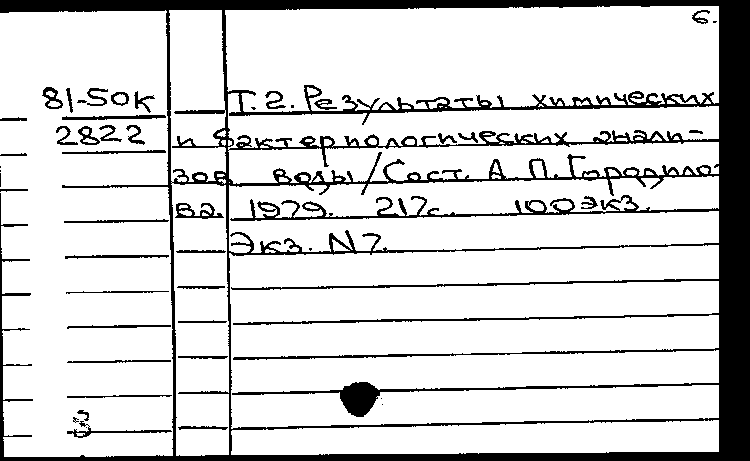 6.
81-50к Т.2. Результаты химических
2822 и бактериологических анали-
зов воды/Сост. А.П. Городило-
ва. 1979. 217с. 100экз.
Экз. N7.
3